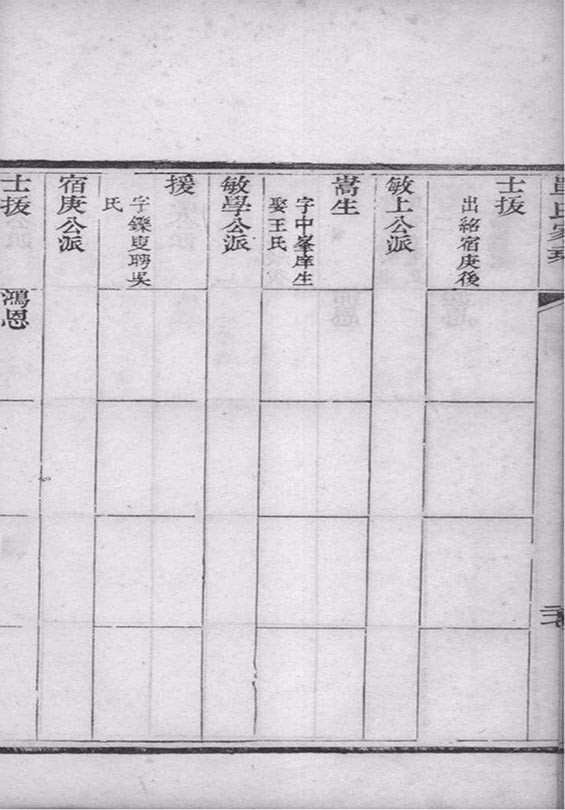 氏家
士扳
出紹宿庚後
敏上公派
嵩生
字中峯庠生
娶王氏
敏學公派
援
字鑠叟聘吳
氏
宿庚公派
士扳
鴻恩